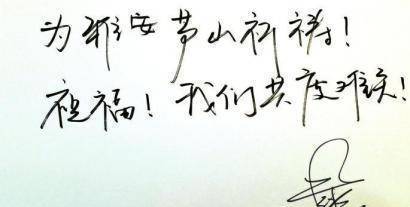 为雅安芦山祈祷！
祝福！我们共度难关！